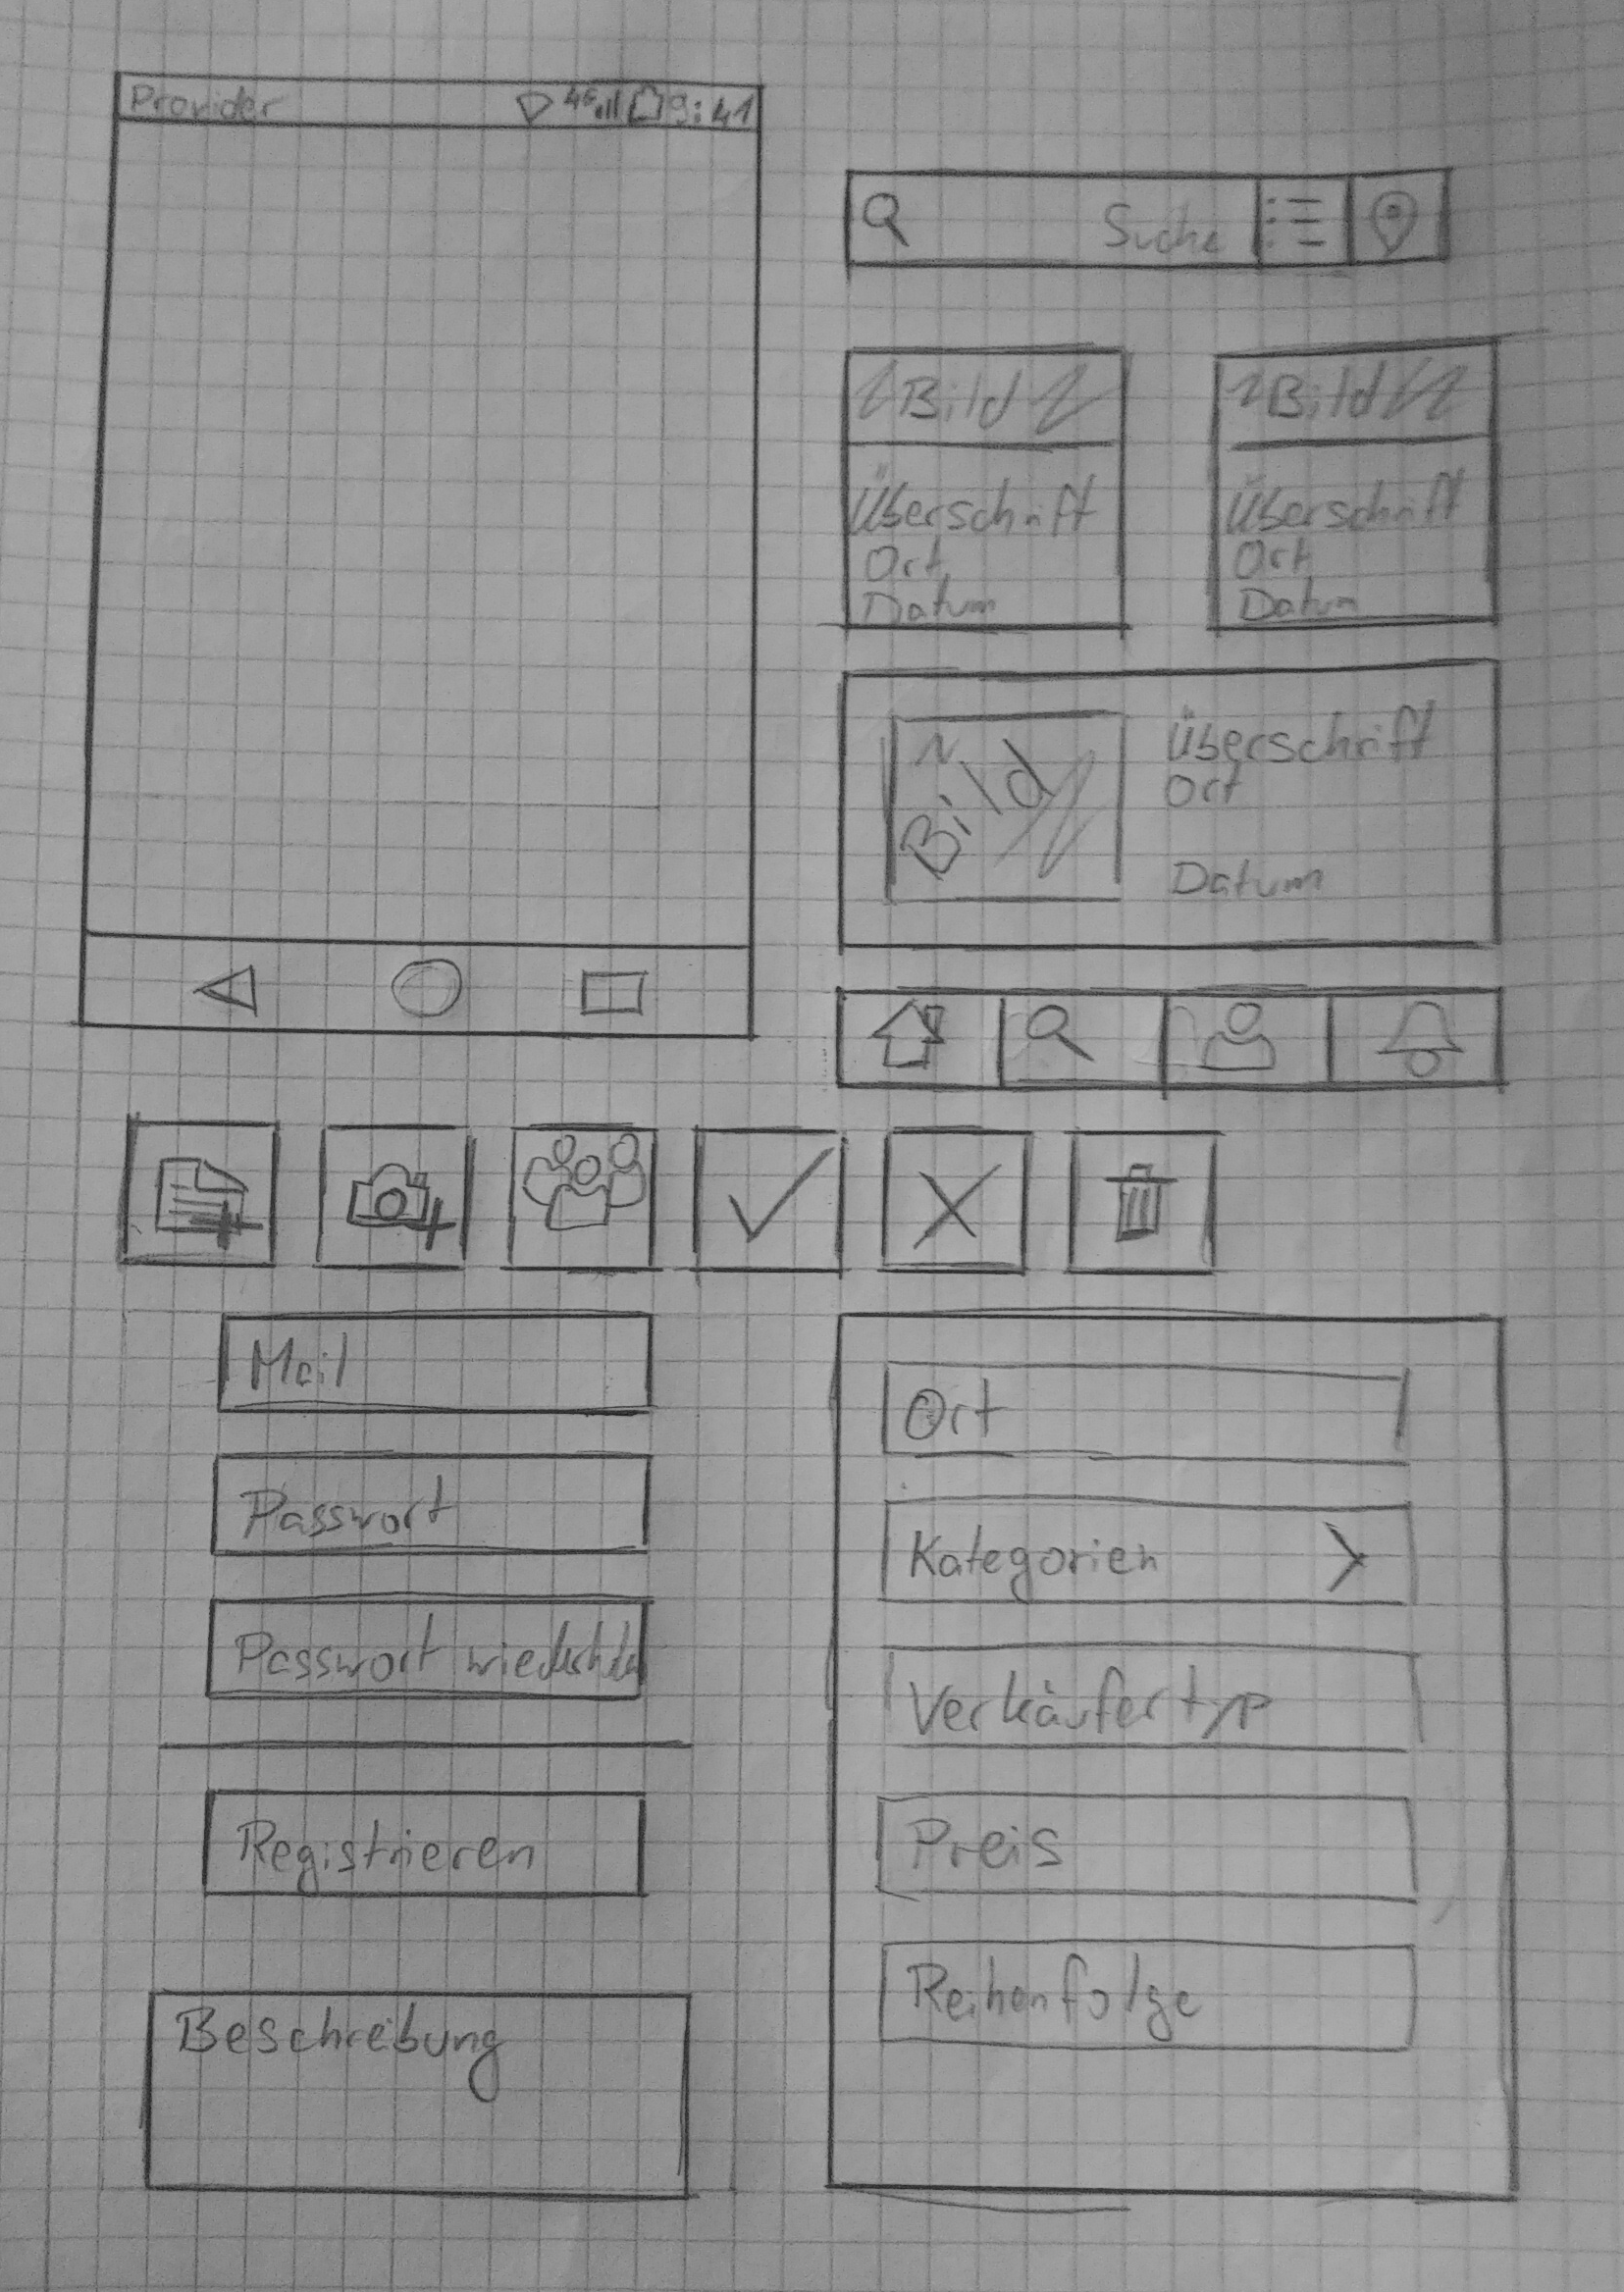 Provider 4G 9:41
Suche
Bild
Überschrift
Ort
Datum
Bild
Überschrift
Ort
Datum
Bild
Überschrift
Ort
Datum
Mail
Passwort
Passwort wiederholen
Registrieren
Beschreibung
Ort
Kategorien
Verkäufertyp
Preis
Reihenfolge